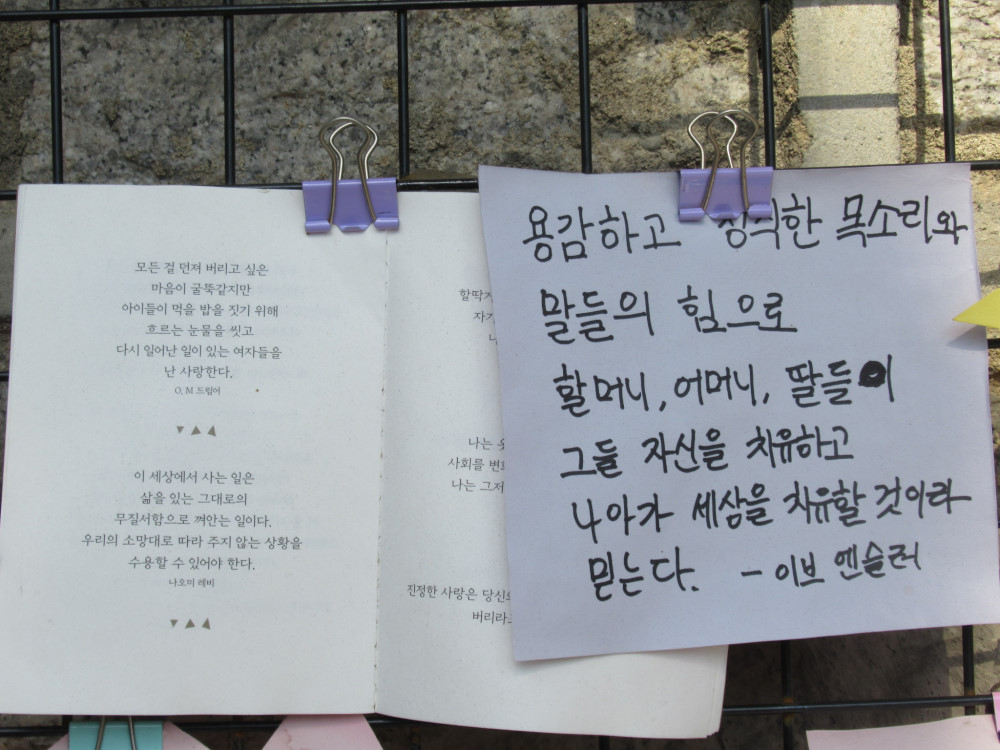 모든 걸 먼져 버리고 싶은
마음이 굴뚝같지만
아이들이 먹을 밥을 짓기 위해
흐르는 눈물을 씻고
다시 일어난 일이 있는 여자들을
난 사랑한다.
O. M 드림어
이 세상에서 사는 일은
삶을 있는 그대로의
무질서함으로 껴안는 일이다.
우리의 소망대로 따라 주지 않는 상황을
수용할 수 있어야 한다.
나오미 레비
자기
나는
사회를
나는 그저
진정한 사랑은
용감하고 목소리와
말들의 힘으로
할머니, 어머니, 딸들이
그들 자신을 치유하고
나아가 세상을 치유할 것이라
믿는다. - 이브 엔슬러